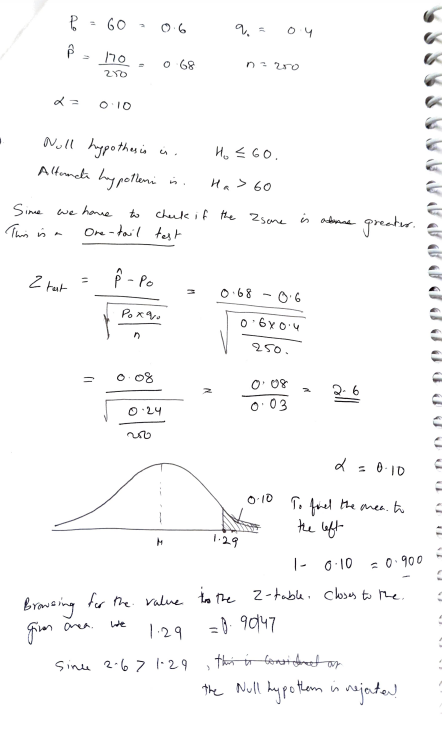 P = 60 = 0.6 q. = 0.4
p̂ = 170/250 = 0.68 n = 250
α = 0.10
Null hypothesis is. H₀ ≤ 60.
Alternate hypothesis is. Ha > 60
Since we have to check if the Zscore is greater.
This is a One-tail test
Z test = p̂ - P₀ / √(P₀ x q₀ / n) = 0.68 - 0.6 / √(0.6 x 0.4 / 250.)
= 0.08 / √(0.24 / 250) = 0.08 / 0.03 = 2.6
α = 0.10
0.10 To find the area to
the left
M 1.29
1 - 0.10 = 0.900
Browsing for the value to the Z-table. Closes to the.
given area. We 1.29 = 0.90147
Since 2.6 > 1.29, this is considered as
the Null hypothesis is rejected